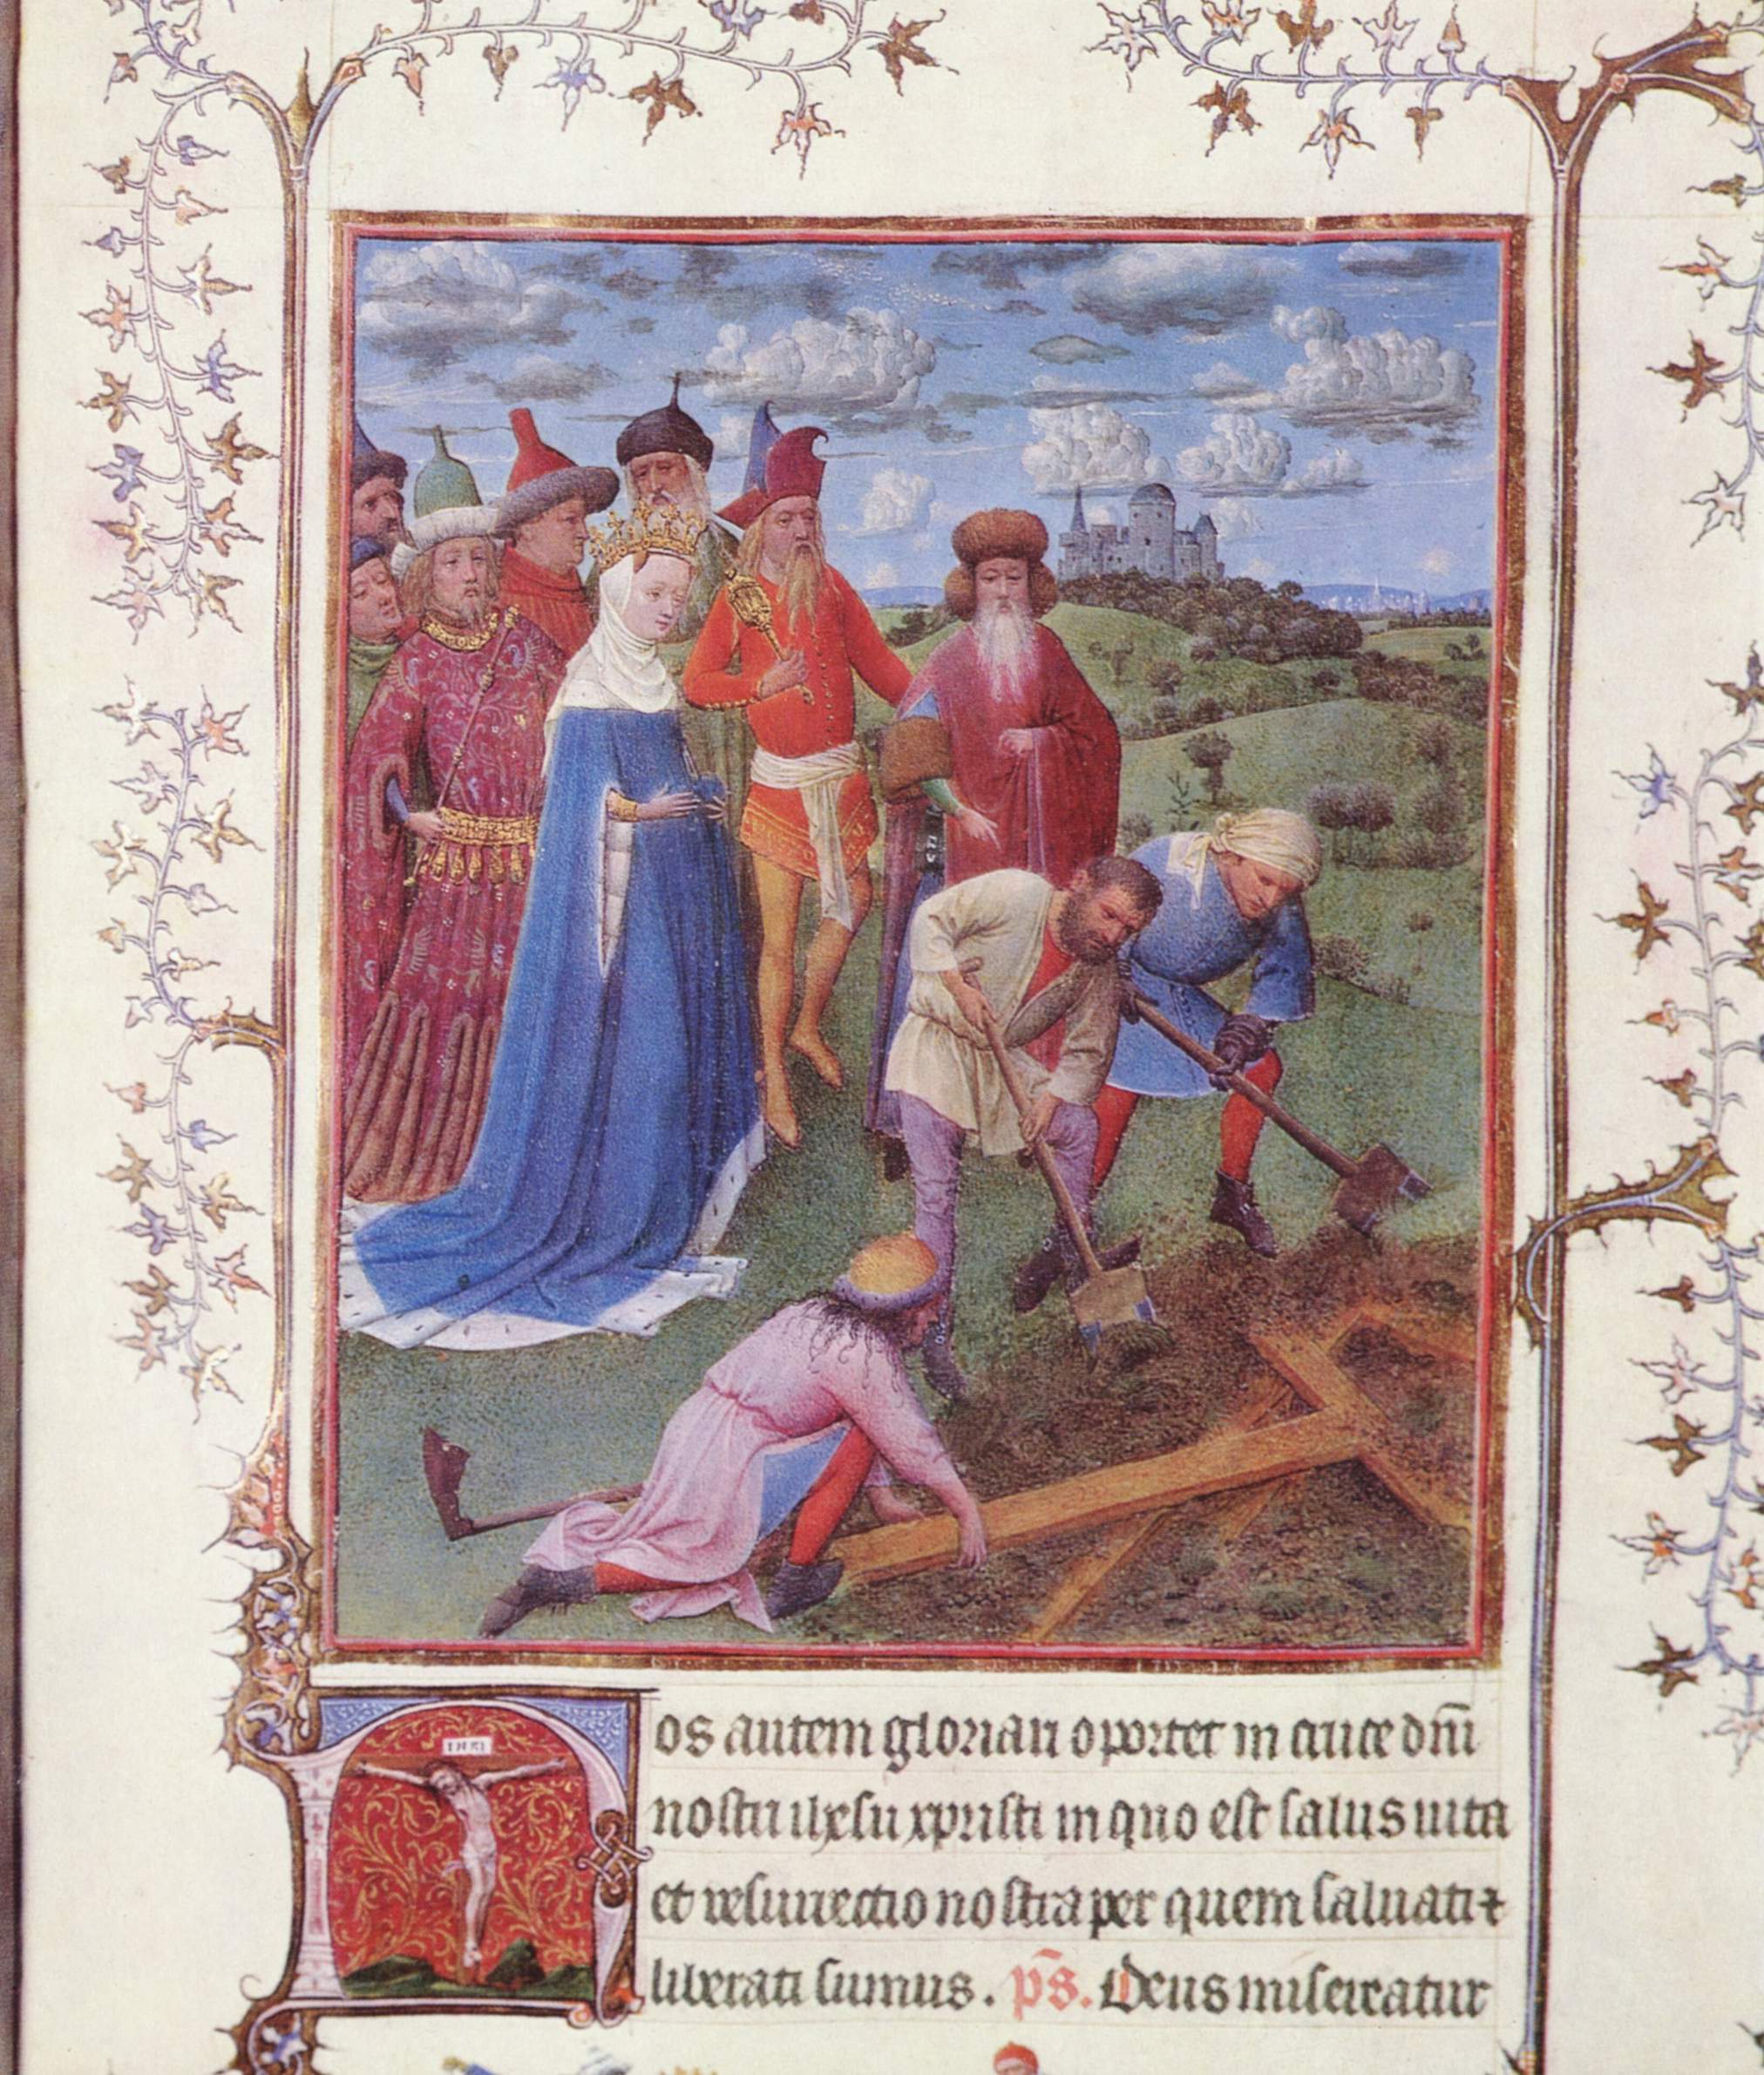 INRI
os autem gloriari oportet in cruce dñi
nostri ihesu xpristi in quo est salus uita
et resurrectio nostra per quem saluati ⁊
liberati sumus. p̄s. Deus misereatur